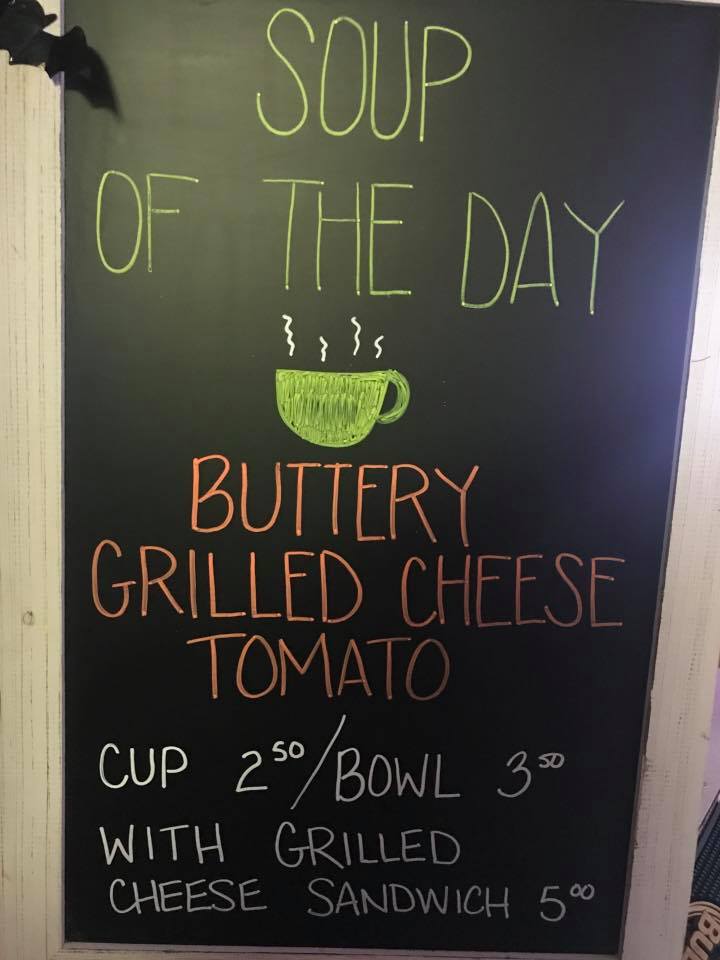 SOUP
OF THE DAY
BUTTERY
GRILLED CHEESE
TOMATO
CUP 2⁵⁰/BOWL 3⁵⁰
WITH GRILLED
CHEESE SANDWICH 5⁰⁰